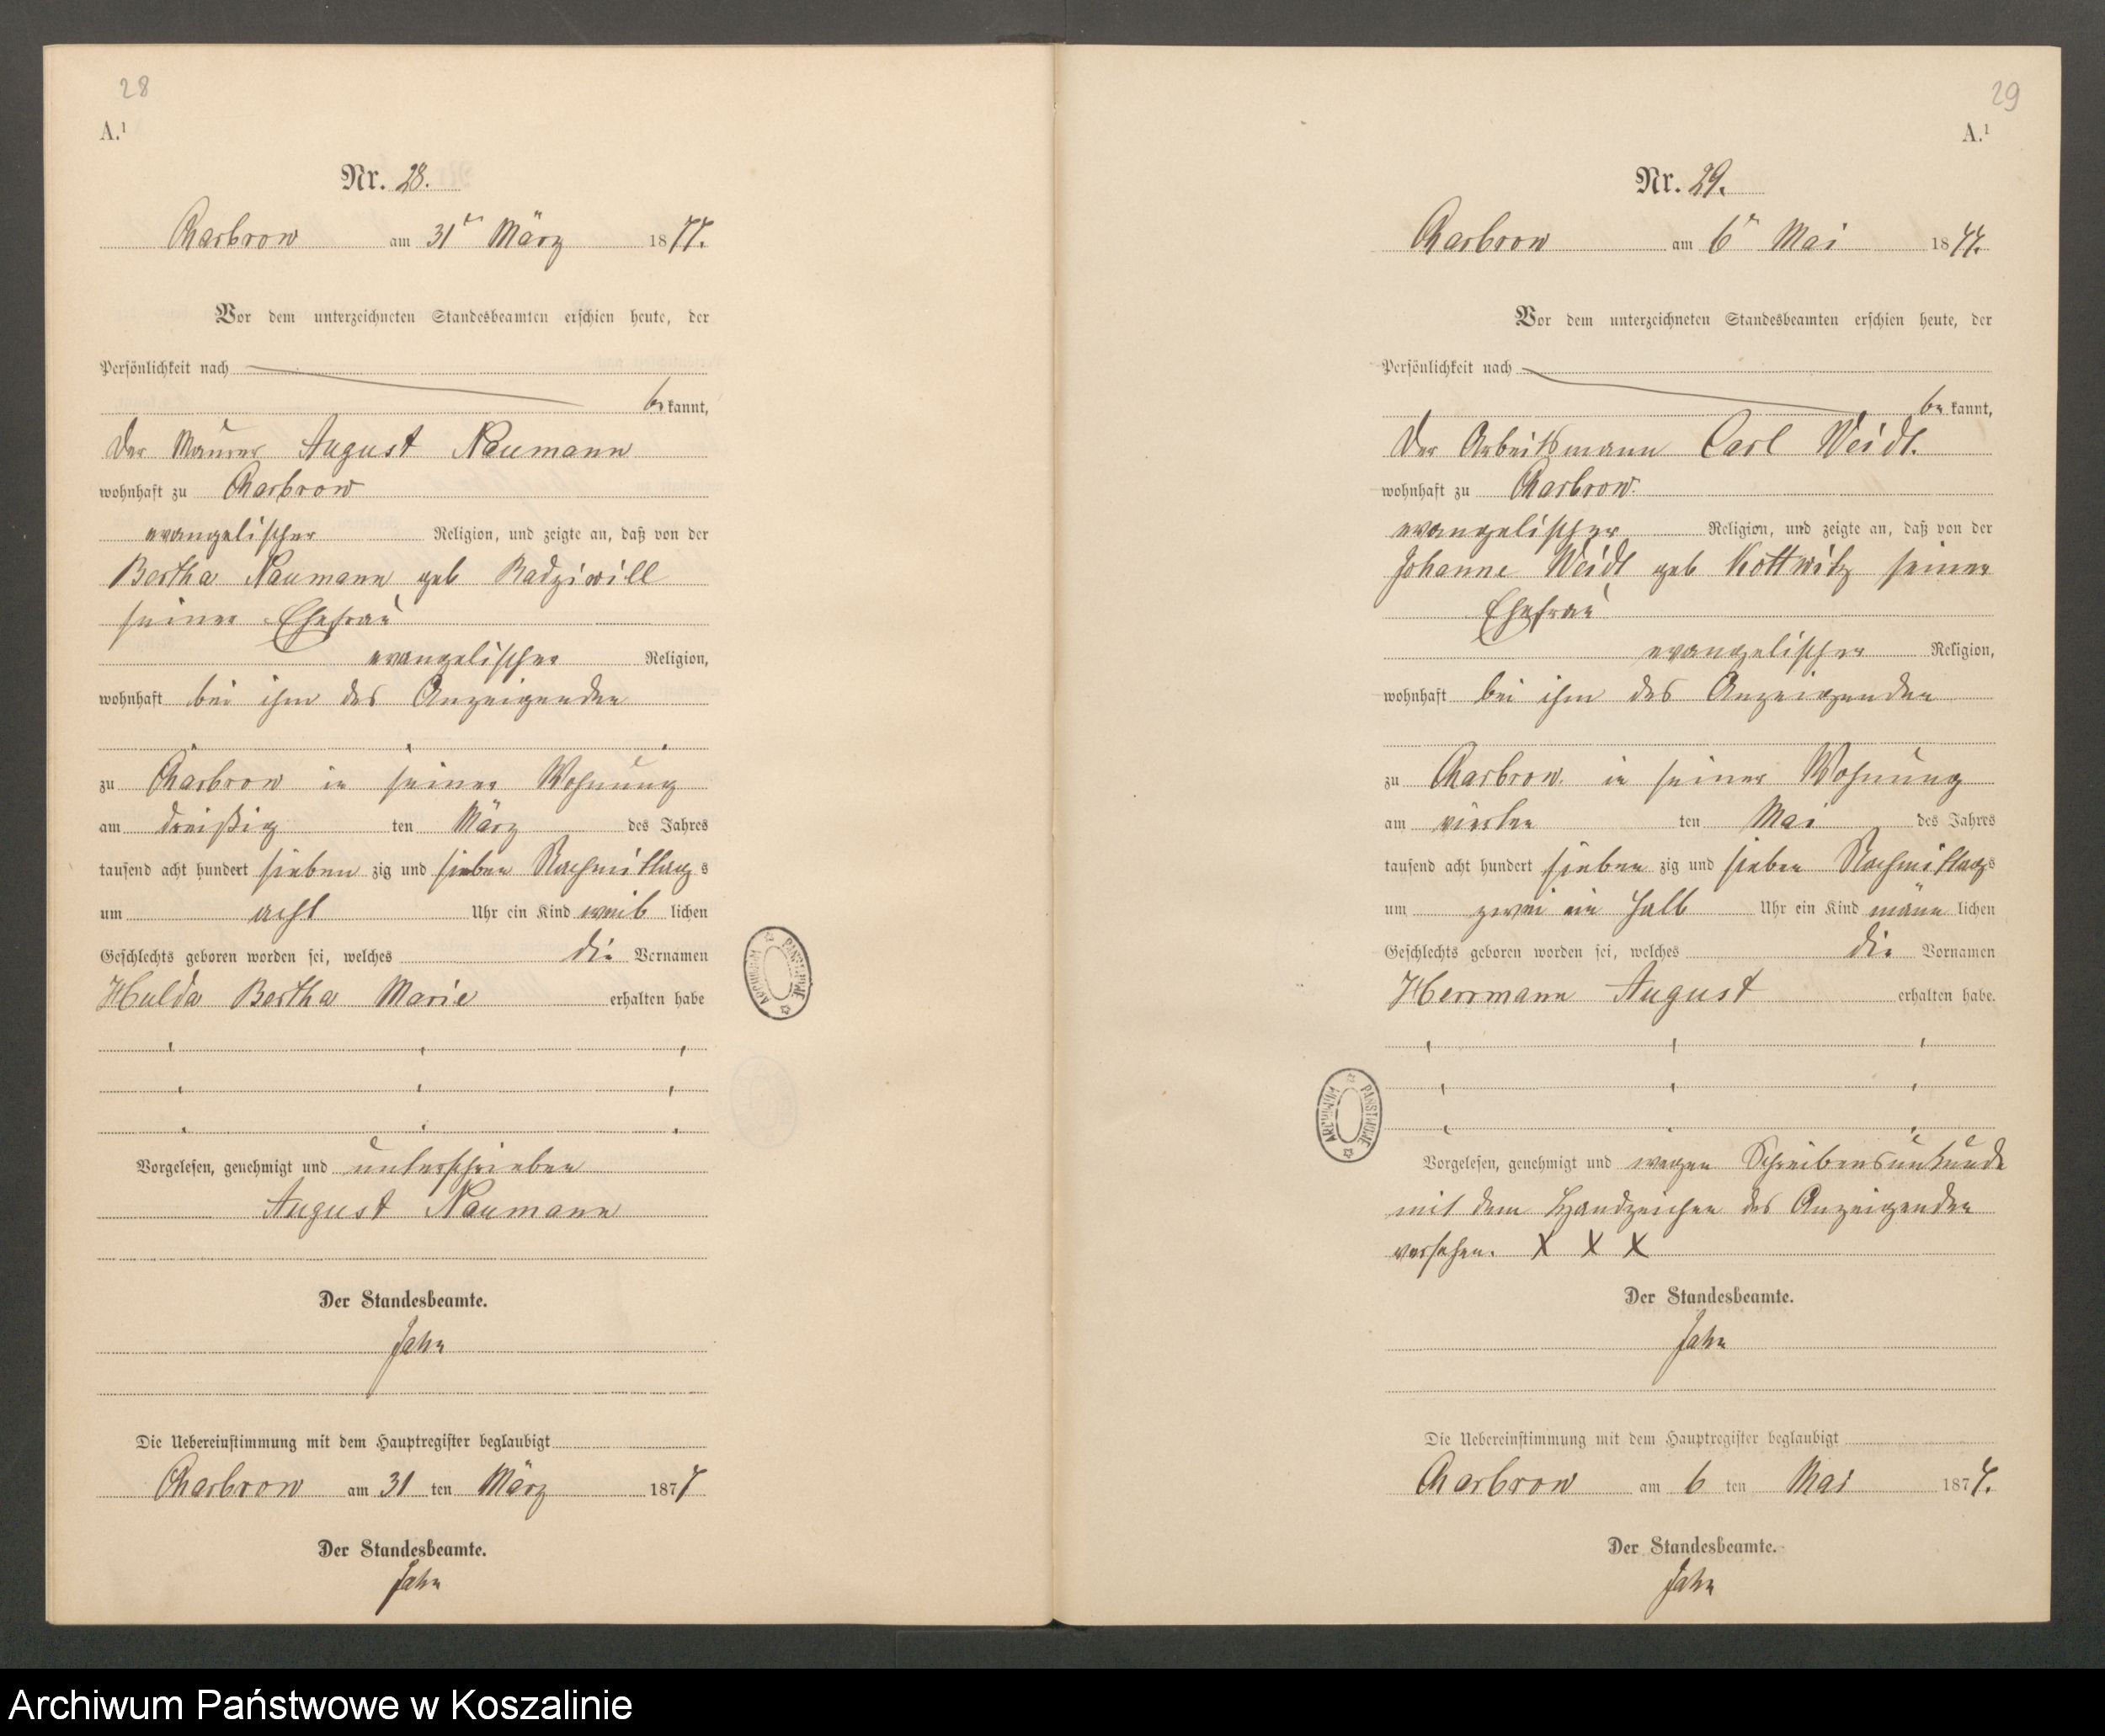 28
A.¹
Nr. 28.
Charbrow am 31ten März 1877.
Vor dem unterzeichneten Standesbeamten erschien heute, der
Persönlichkeit nach
be kannt,
der Maurer August Naumann
wohnhaft zu Charbrow
evangelischer Religion, und zeigte an, daß von der
Bertha Naumann geb Radziwill
seiner Ehefrau
evangelischer Religion,
wohnhaft bei ihm des Anzeigenden
zu Charbrow in seiner Wohnung
am dreißig ten März des Jahres
tausend acht hundert sieben zig und sieben Nachmittag s
um acht Uhr ein Kind weib lichen
Geschlechts geboren worden sei, welches die Vornamen
Hulda Bertha Marie erhalten habe
Vorgelesen, genehmigt und unterschrieben
August Naumann
Der Standesbeamte.
Jahn
Die Uebereinstimmung mit dem Hauptregister beglaubigt
Charbrow am 31 ten März 1877
Der Standesbeamte.
Jahn
ARCHIWUM PAŃSTWOWE
29
A.¹
Nr. 29.
Charbrow am 6ten Mai 1877.
Vor dem unterzeichneten Standesbeamten erschien heute, der
Persönlichkeit nach
be kannt,
der Arbeitsmann Carl Weidt.
wohnhaft zu Charbrow.
evangelischer Religion, und zeigte an, daß von der
Johanne Weidt geb Kottwitz seiner
Ehefrau
evangelischer Religion,
wohnhaft bei ihm des Anzeigenden
zu Charbrow. in seiner Wohnung
am vierten ten Mai des Jahres
tausend acht hundert sieben zig und sieben Nachmittag s
um zwei ein halb Uhr ein Kind männ lichen
Geschlechts geboren worden sei, welches die Vornamen
Herrmann August erhalten habe.
Vorgelesen, genehmigt und wegen Schreibensunkunde
mit dem Handzeichen des Anzeigenden
versehen. X X X
Der Standesbeamte.
Jahn
Die Uebereinstimmung mit dem Hauptregister beglaubigt
Charbrow am 6 ten Mai 1877.
Der Standesbeamte.
Jahn
ARCHIWUM PAŃSTWOWE
Archiwum Państwowe w Koszalinie